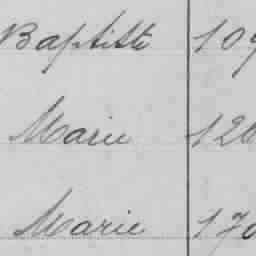 Baptiste 109
Marie 126
Marie 170